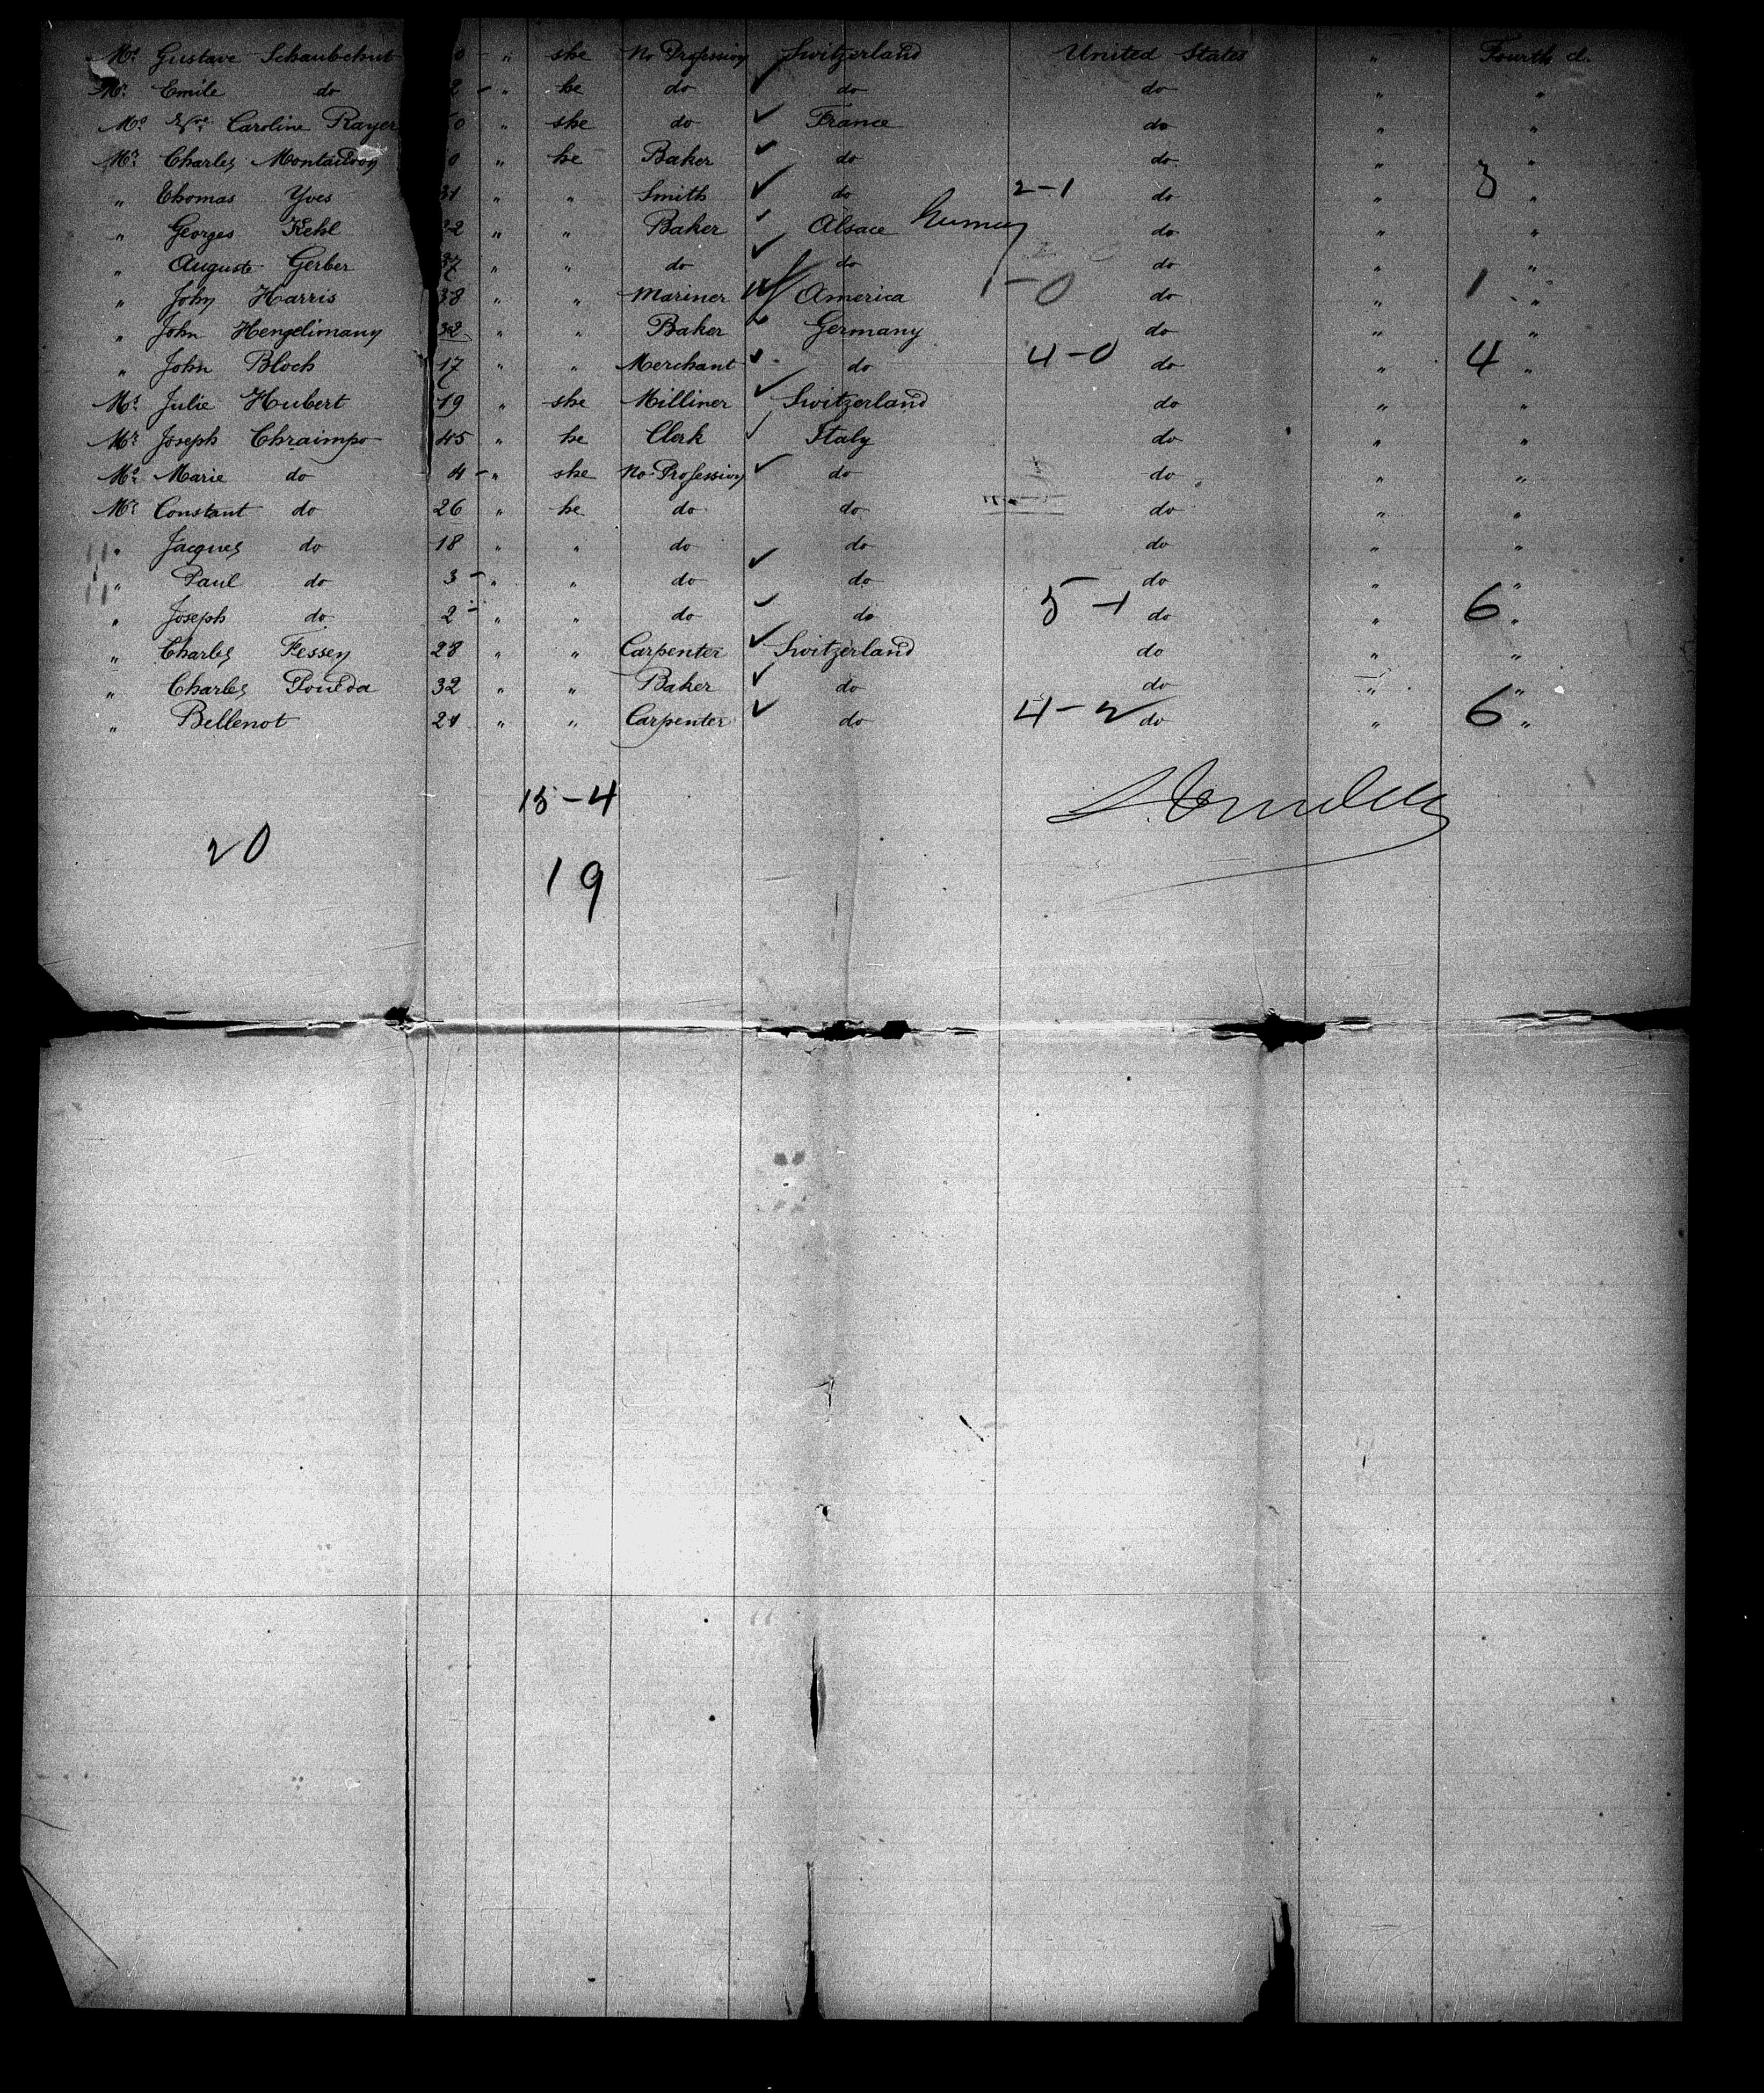 Md. Gustave Schaubchut 0 " she No Profession Switzerland United States " Fourth cl.
Mr. Emile do 2 - " he do do do " "
Md. Vve Caroline Rayer 0 " she do France do " "
Mr. Charles 0 " he Baker do do " "
" Thomas Yves 31 " " Smith do 2-1 do 3 "
" Georges Kehl 32 " " Baker Alsace Germany do " "
" Auguste Gerber 37 " " do do do " "
" John Harris 38 " " Mariner America 1-0 do " 1 "
" John Hengelimany 32 " " Baker Germany do " "
" John Bloch 17 " " Merchant do 4-0 do " 4 "
Md. Julie Hubert 19 " she Milliner Switzerland do " "
Mr. Joseph Chraimpo 45 " he Clerk Italy do " "
Md. Marie do 4 - " she No Profession do do " "
Mr. Constant do 26 " he do do do " "
" Jacques do 18 " " do do do " "
" Paul do 3 - " " do do do " "
" Joseph do 2 - " " do do 5-1 do " 6 "
" Charles Fessey 28 " " Carpenter Switzerland do " "
" Charles 32 " " Baker do do " "
" Bellenot 21 " " Carpenter do 4-2 do " 6 "
15-4
20
19